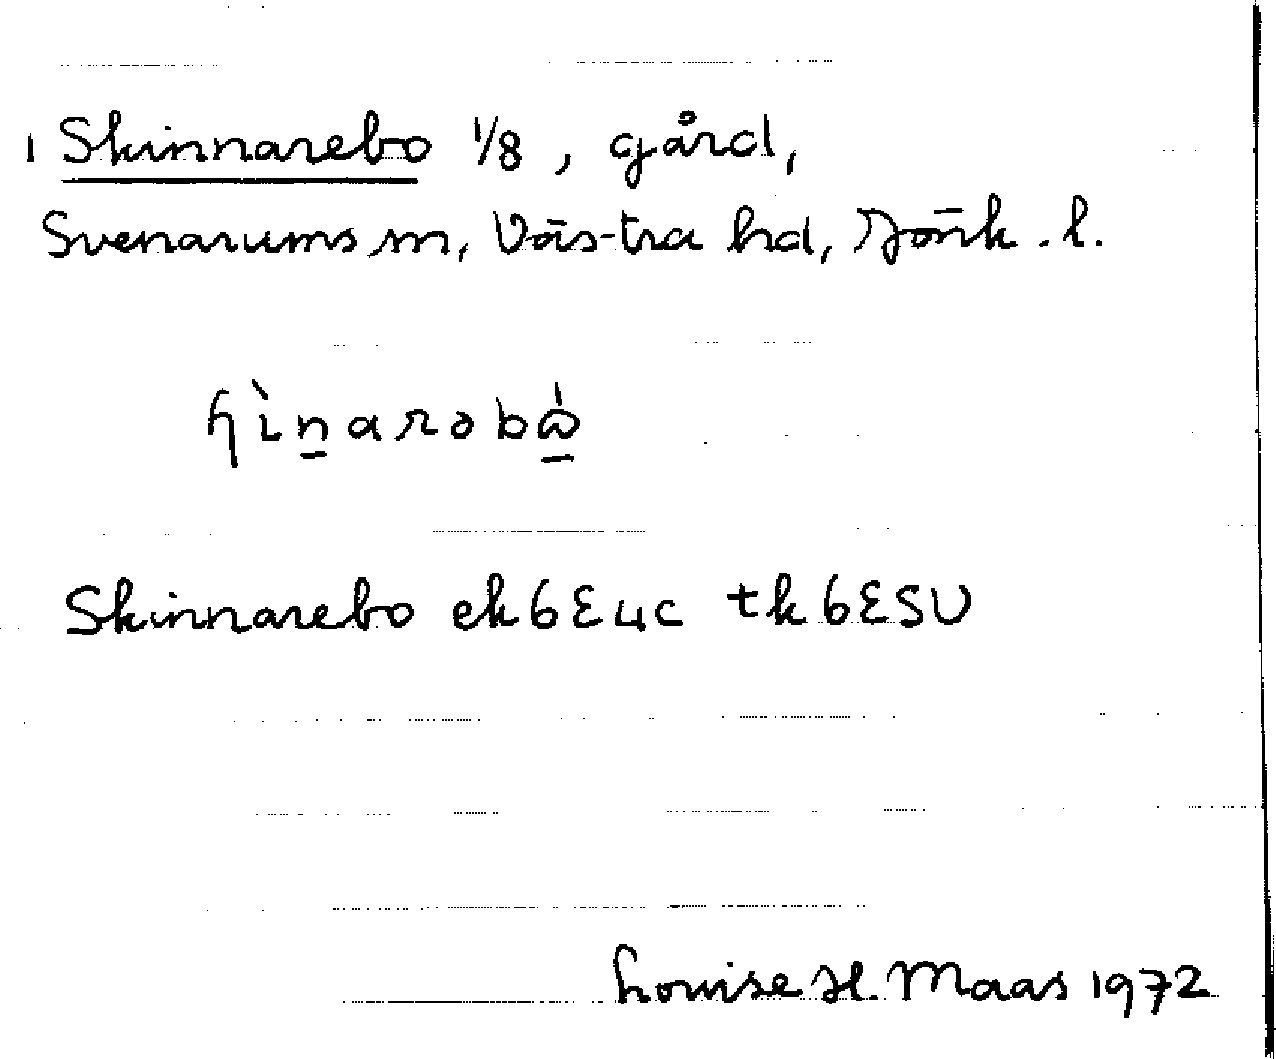 1 Skinnarebo 1/8, gård,
Svenarums sn, Västra hd, Jönk. l.
ɧìn̲arəbὼ̲
Skinnarebo ek 6E4c tk 6E5U
Louise H. Maas 1972